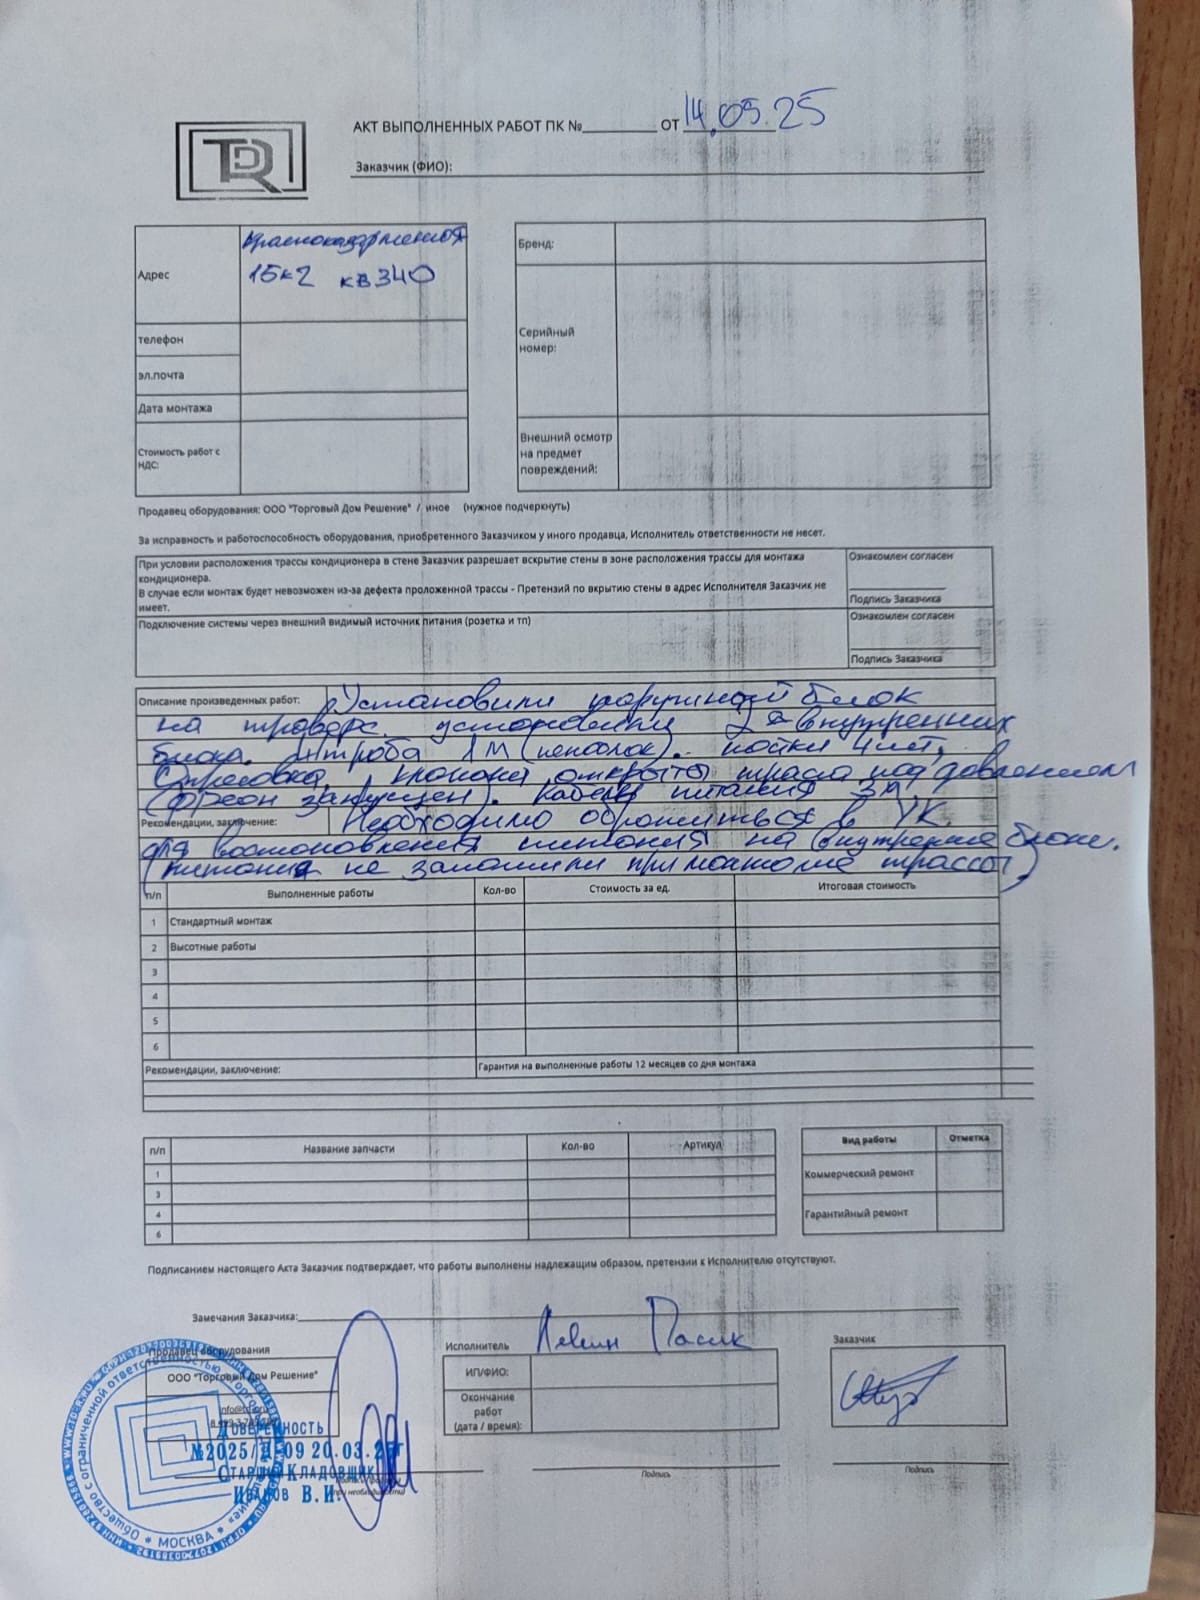 TDR
АКТ ВЫПОЛНЕННЫХ РАБОТ ПК №_________ ОТ 14.05.25
Заказчик (ФИО):
Адрес
Красноказарменная
15к2 кв 340
телефон
эл.почта
Дата монтажа
Стоимость работ с НДС:
Бренд:
Серийный номер:
Внешний осмотр на предмет повреждений:
Продавец оборудования: ООО "Торговый Дом Решение" / иное (нужное подчеркнуть)
За исправность и работоспособность оборудования, приобретенного Заказчиком у иного продавца, Исполнитель ответственности не несет.
При условии расположения трассы кондиционера в стене Заказчик разрешает вскрытие стены в зоне расположения трассы для монтажа
кондиционера.
В случае если монтаж будет невозможен из-за дефекта проложенной трассы - Претензий по вкрытию стены в адрес Исполнителя Заказчик не
имеет.
Ознакомлен согласен
Подпись Заказчика
Подключение системы через внешний видимый источник питания (розетка и тп)
Ознакомлен согласен
Подпись Заказчика
Описание произведенных работ: Установили наружный блок
на установили 2 внутренних
блока. Штроба 1м (пеноблок). пайки 4шт,
Опрессовка, краны открыты трасса под давлением
(фреон запущен). Кабель питания 3м
Рекомендации, заключение: Необходимо обратиться в УК.
для востановления питания на внутренние блоки.
(питание не заложили при монтаже трассы)
п/п Выполненные работы Кол-во Стоимость за ед. Итоговая стоимость
1 Стандартный монтаж
2 Высотные работы
3
4
5
6
Рекомендации, заключение: Гарантия на выполненные работы 12 месяцев со дня монтажа
п/п Название запчасти Кол-во Артикул
1
3
4
6
Вид работы Отметка
Коммерческий ремонт
Гарантийный ремонт
Подписанием настоящего Акта Заказчик подтверждает, что работы выполнены надлежащим образом, претензии к Исполнителю отсутствуют.
Замечания Заказчика:
Продавец оборудования
ООО "Торговый Дом Решение"
Доверенность
№2025/Д-09 20.03.25г
Старший Кладовщик
Иванов В.И.
МОСКВА
Исполнитель
ИП/ФИО:
Окончание работ (дата / время):
Подпись
Заказчик
Подпись